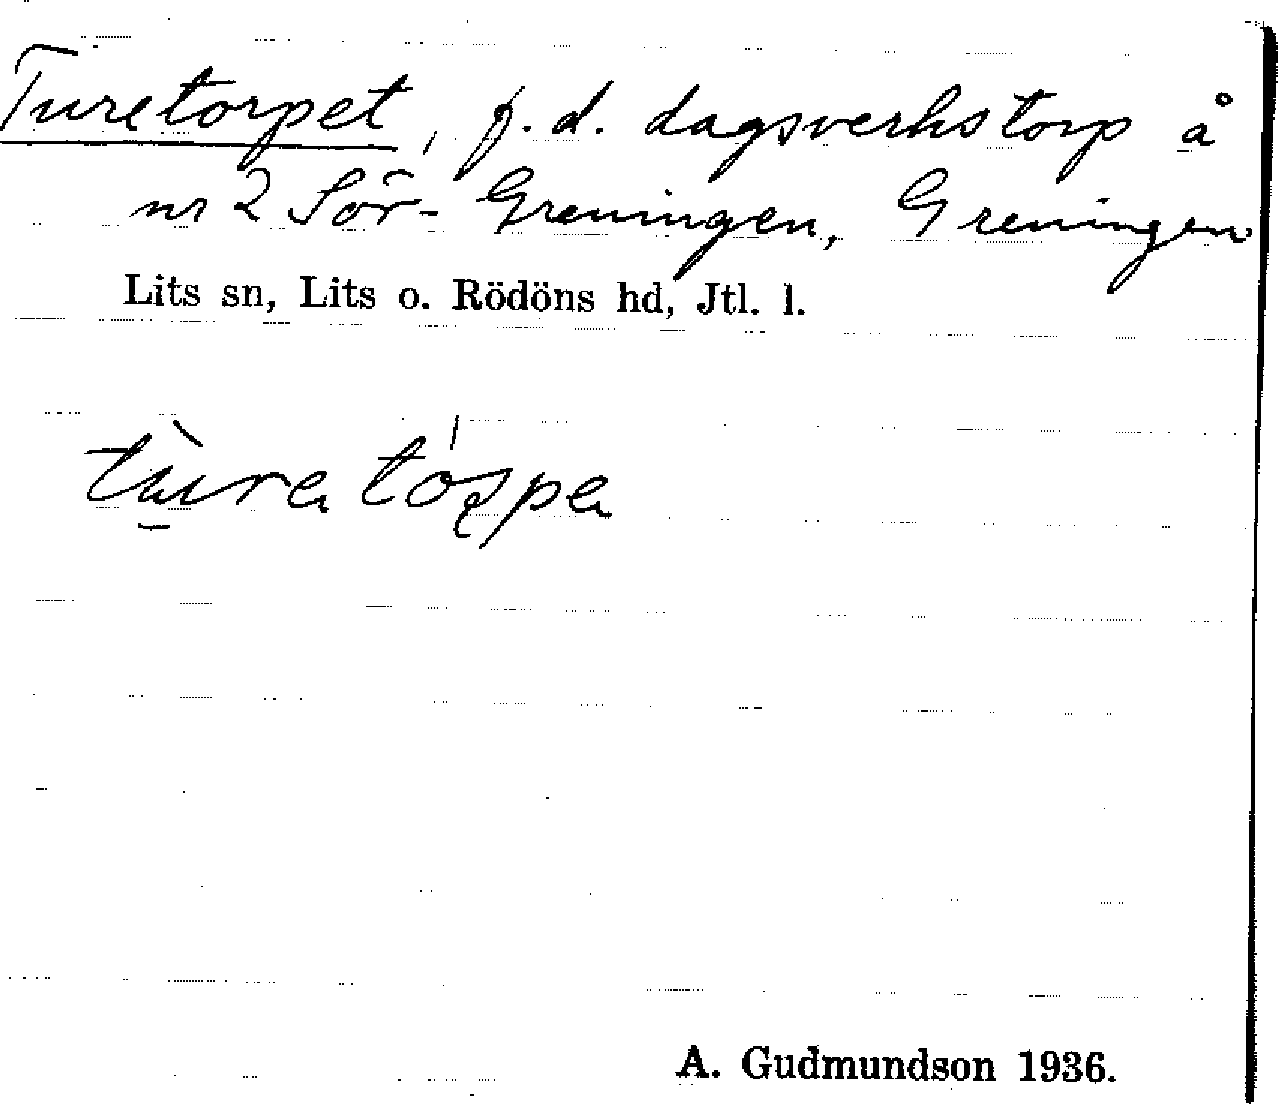 Turetorpet, f.d. dagsverkstorp å
nr 2 Sör-Greningen, Greningen
Lits sn, Lits o. Rödöns hd, Jtl. l.
A. Gudmundson 1936.